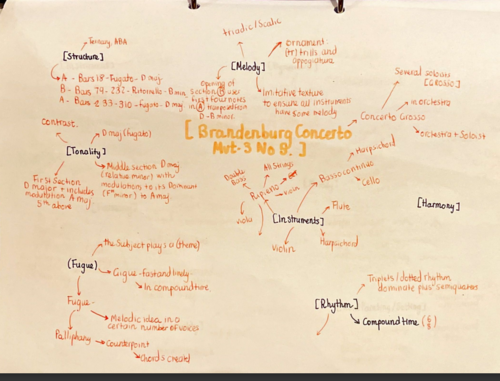 Ternary ABA
[Structure]
A - Bars 1-78 - Fugato - D maj
B - Bars 79-232 - Ritornello - B min
A - Bars 233-310 - Fugato - D maj
triadic/Scalic
[Melody]
ornament
(tr) trills and
appogiatura
opening of
section B uses
first four notes
in A transposition
D-B minor.
imitative texture
to ensure all instruments
have same melody
Several soloists
[GROSSO]
Concerto Grosso
orchestra
orchestra + Soloist
contrast.
D maj (fugato)
[Tonality]
Middle section D maj
(relative minor) with
modulation to its Dominant
(F# minor) to A maj
First Section
D major + includes
modulation A maj
5th above
[Brandenburg Concerto
Mvt. 3 No 5.]
Harpsichord
Basso continuo
Cello
All Strings
Double
Bass
Ripieno
viola
[Instruments]
Flute
Harpsichord
Violin
[Harmony]
the Subject plays a (theme)
(Fugue)
Gigue - fast and lively
In compound time
Fugue
Melodic idea in a
certain number of voices
Palliphony
Counterpoint
Chords created
Triplets/dotted rhythm
dominate plus semiquavers
[Rhythm]
Compound time (6/8)